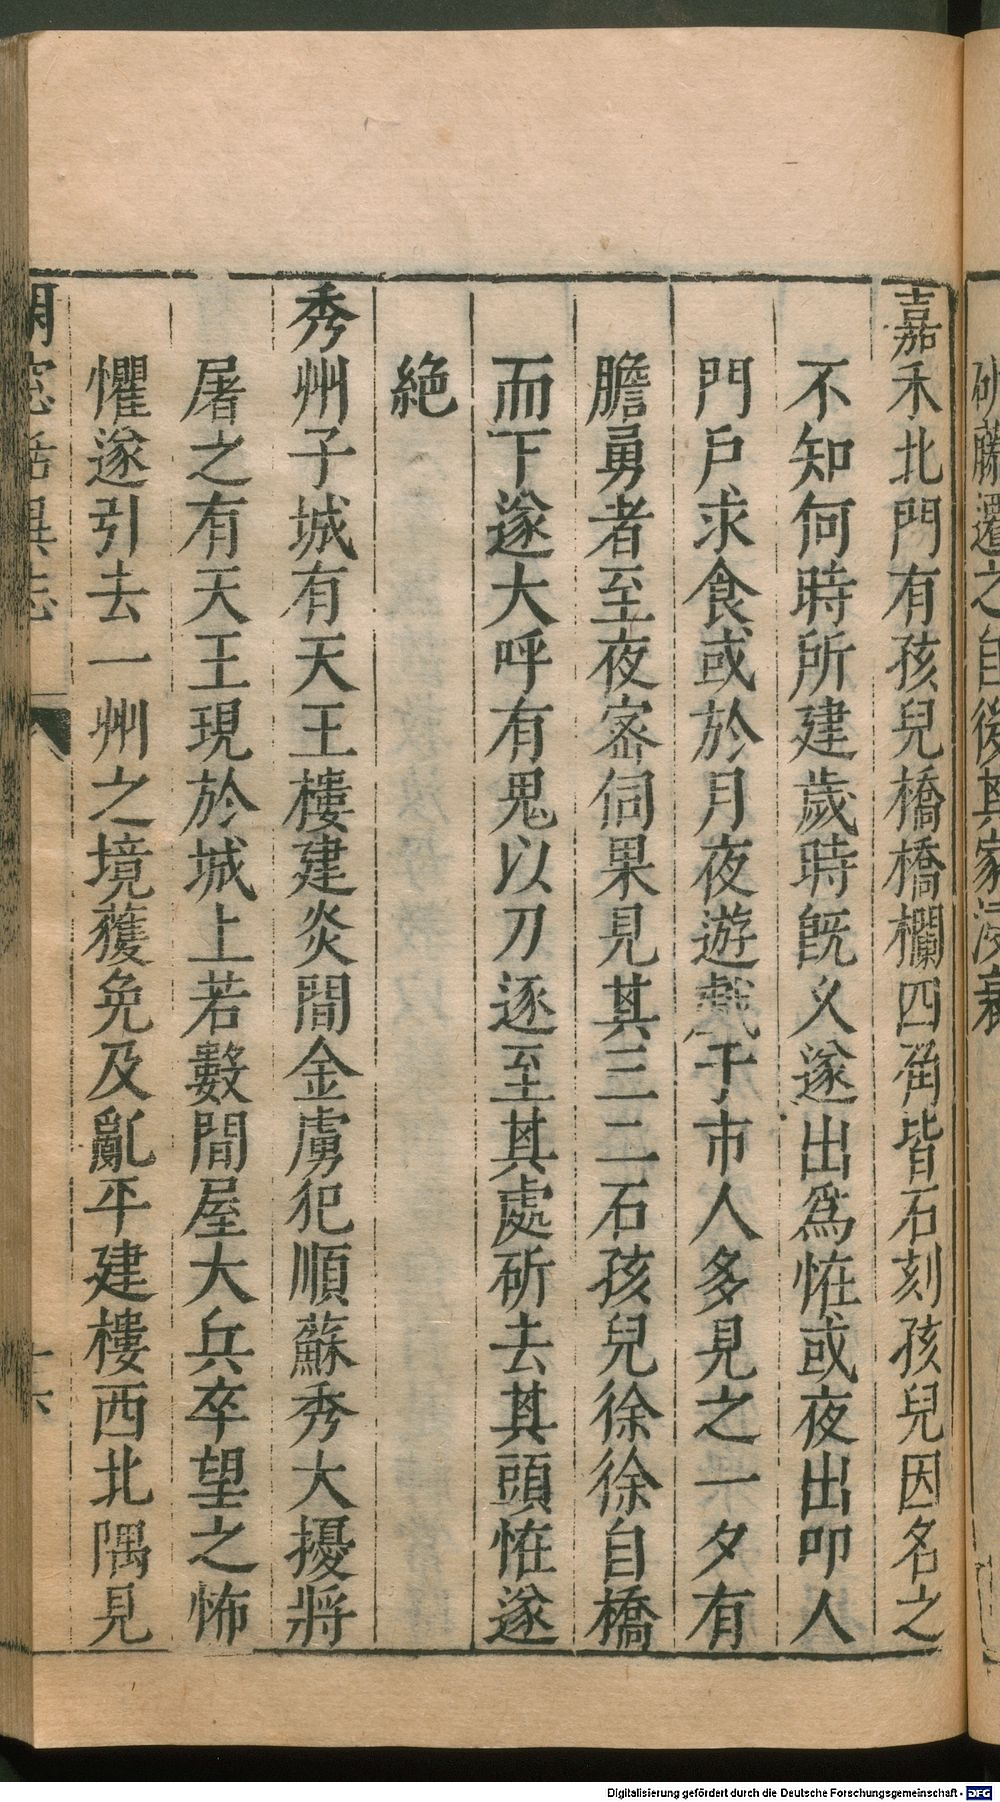 斫藤遷之自後其家浸衰
嘉禾北門有孩兒橋橋欄四角皆石刻孩兒因名之
不知何時所建歲時旣乆遂出爲恠或夜出叩人
門戶求食或於月夜遊戲于市人多見之一夕有
膽勇者至夜宻伺果見其三二石孩兒徐徐自橋
而下遂大呼有鬼以刀逐至其處斫去其頭恠遂
絶
秀州子城有天王樓建炎間金虜犯順蘇秀大擾將
屠之有天王現於城上若數間屋大兵卒望之怖
懼遂引去一州之境獲免及亂平建樓西北隅見
閑窓括異志
十六
Digitalisierung gefördert durch die Deutsche Forschungsgemeinschaft - DFG